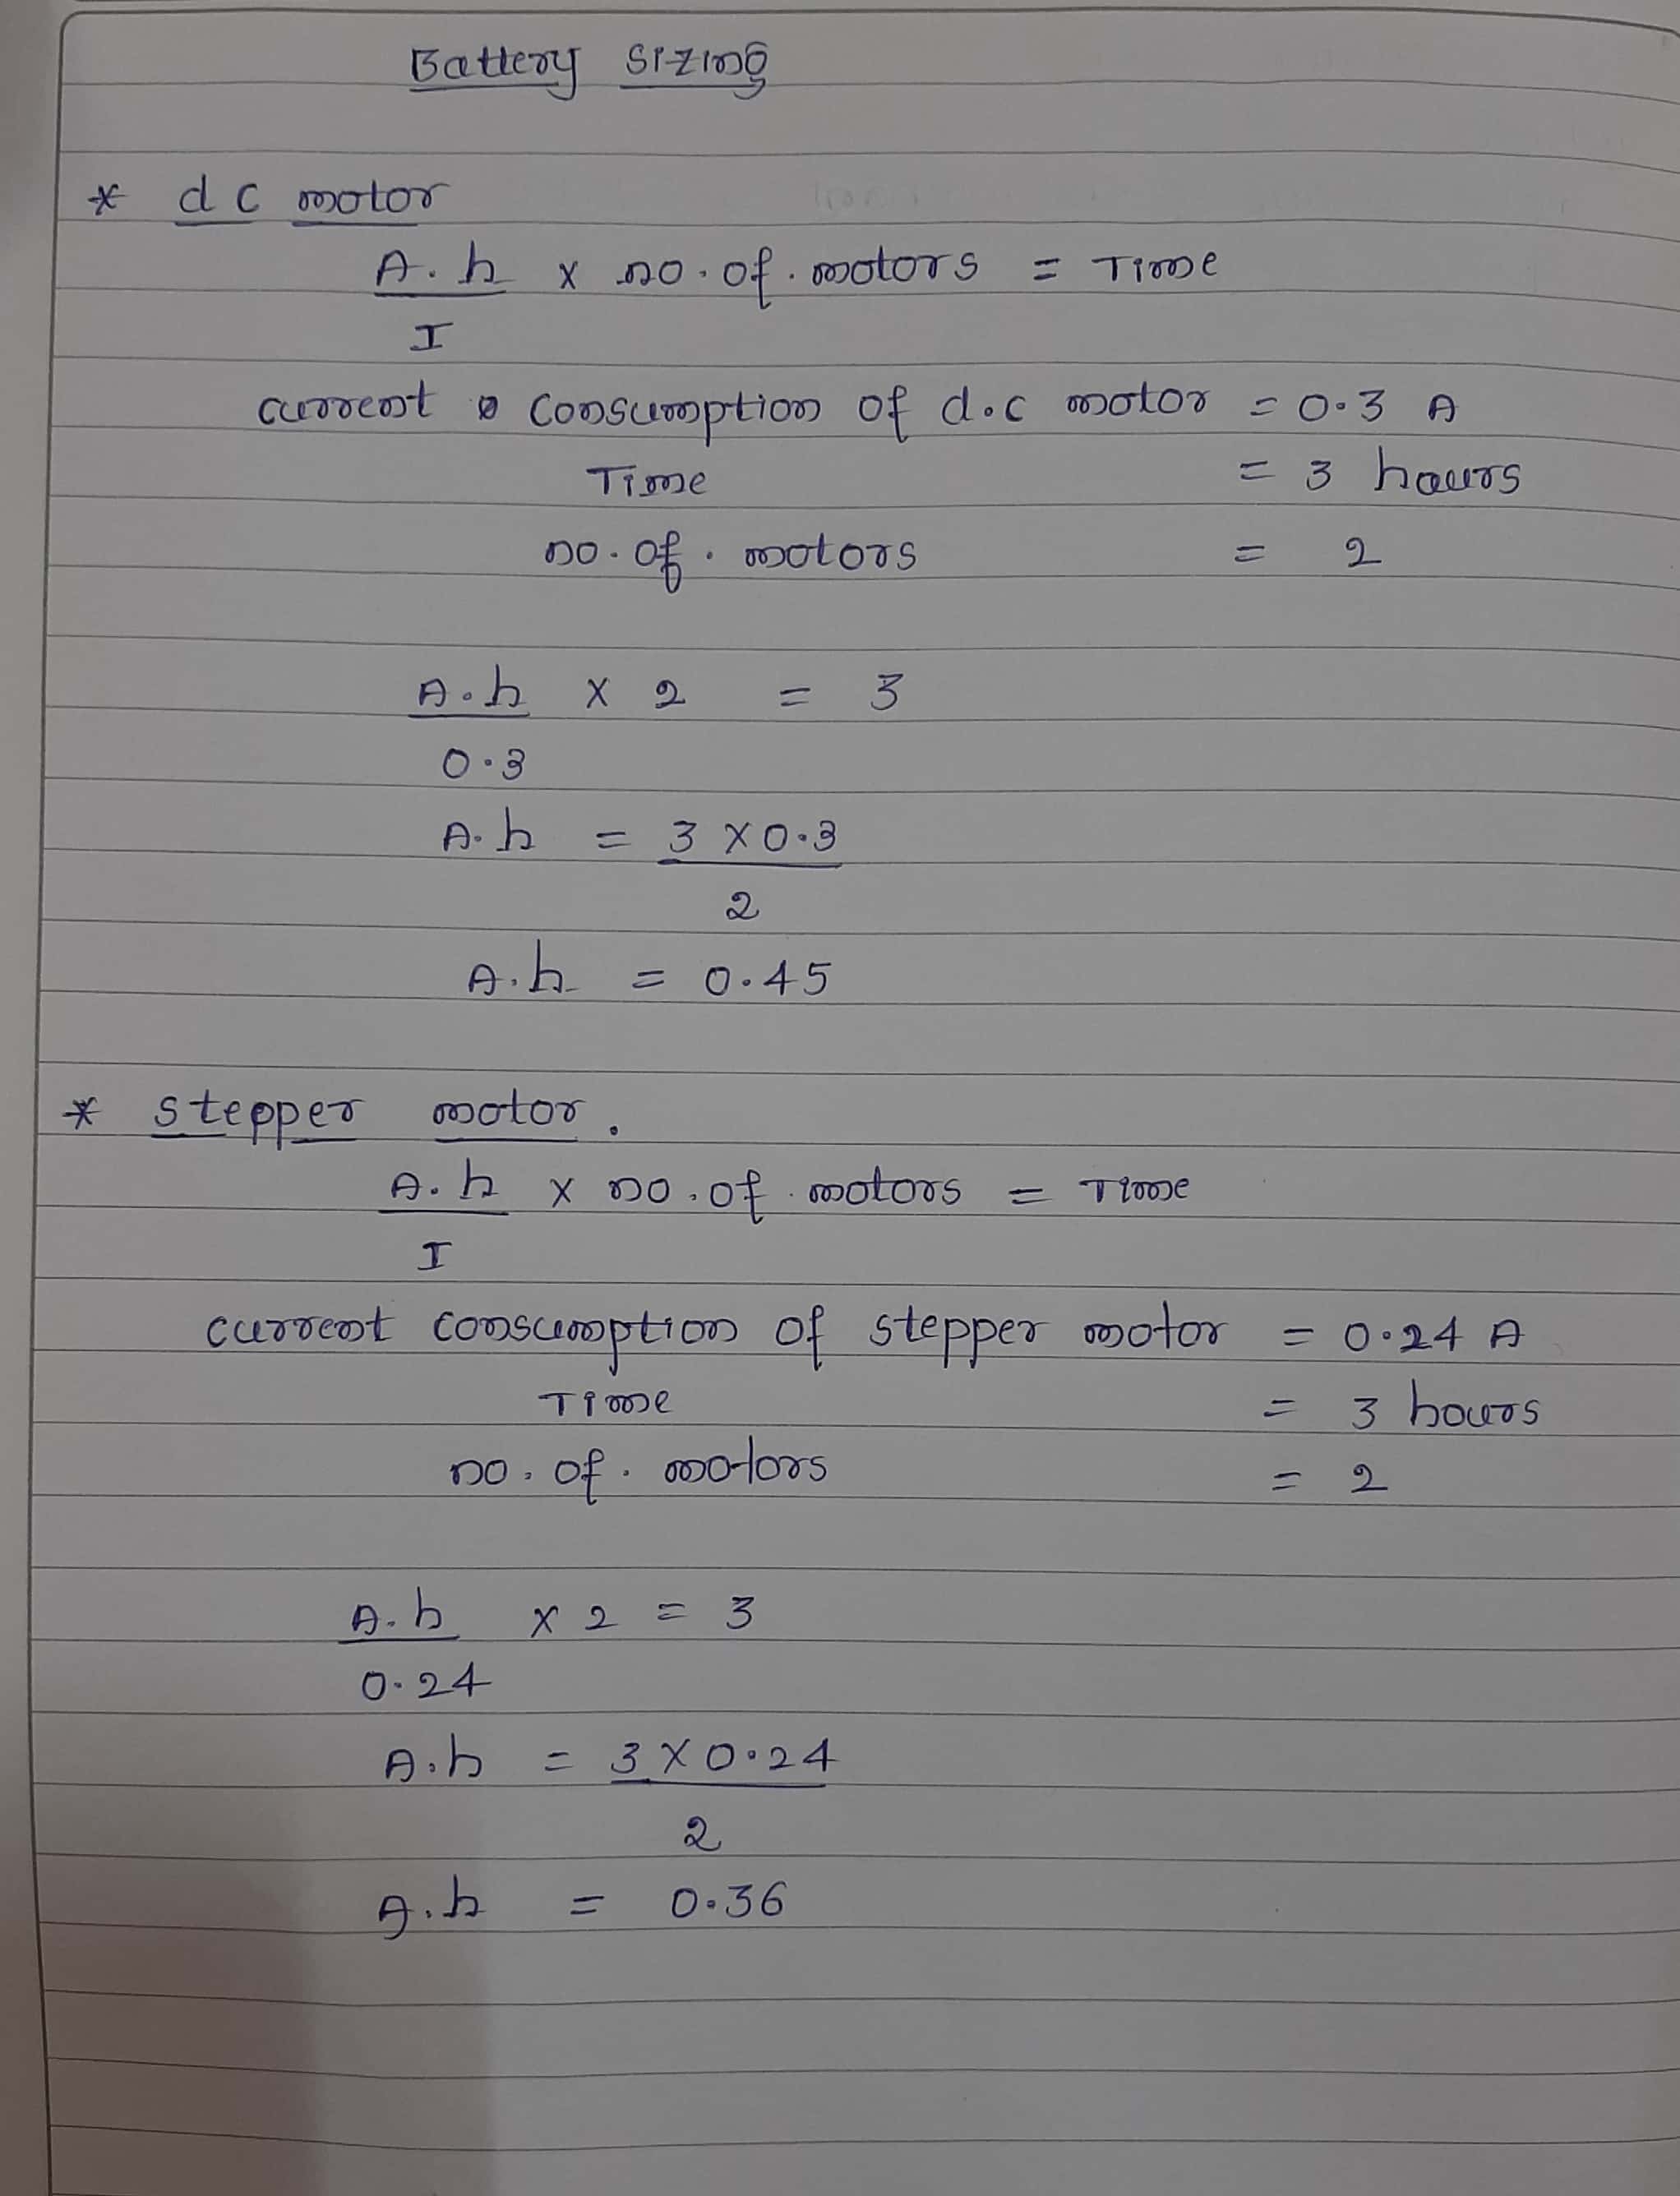 Battery sizing
* dc motor
A.h x no.of.motors = Time
I
current consumption of d.c motor = 0.3 A
Time = 3 hours
no.of.motors = 2
A.h x 2 = 3
0.3
A.h = 3 x 0.3
2
A.h = 0.45
* stepper motor.
A.h x no.of.motors = Time
I
current consumption of stepper motor = 0.24 A
Time = 3 hours
no.of.motors = 2
A.h x 2 = 3
0.24
A.h = 3 x 0.24
2
A.h = 0.36